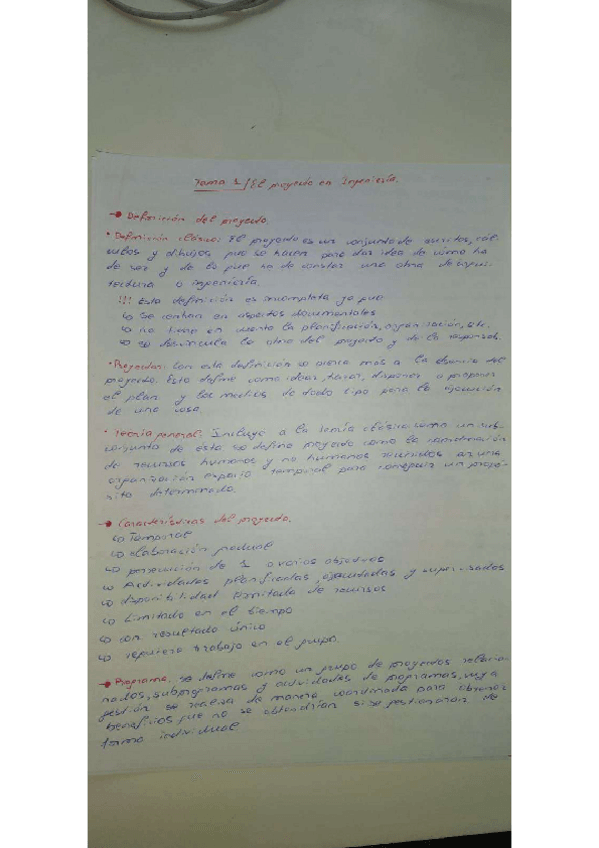 Tema 1/El proyecto en Ingeniería.
→ Definición del proyecto.
• Definición clásica: El proyecto es un conjunto de escritos, cál-
culos y dibujos que se hacen para dar idea de cómo ha
de ser y de lo que ha de costar una obra de arqui-
tectura o ingeniería.
!!! Esta definición es incompleta ya que
↳ Se centra en aspectos documentales
↳ no tiene en cuenta la planificación, organización, etc.
↳ se desvincula la obra del proyecto y de la
• Proyectar: Con esta definición se acerca más a la esencia del
proyecto. Esta define como idear, trazar, disponer o proponer
el plan y los medios de todo tipo para la ejecución
de una cosa.
• Teoría general: Incluye a la teoría clásica como un sub-
conjunto de ésta se define proyecto como la combinación
de recursos humanos y no humanos reunidos en una
organización temporal para conseguir un propó-
sito determinado.
→ Características del proyecto.
↳ Temporal
↳ elaboración gradual
↳ persecución de 1 o varios objetivos
↳ Actividades planificadas, ejecutadas y supervisadas
↳ disponibilidad limitada de recursos
↳ Limitado en el tiempo
↳ con resultado único
↳ requiere trabajo en el grupo.
→ Programa. se define como un grupo de proyectos relacio-
nados, subprogramas y actividades de programas, cuya
gestión se realiza de manera coordinada para obtener
beneficios que no se obtendrían si se gestionaran de
forma individual